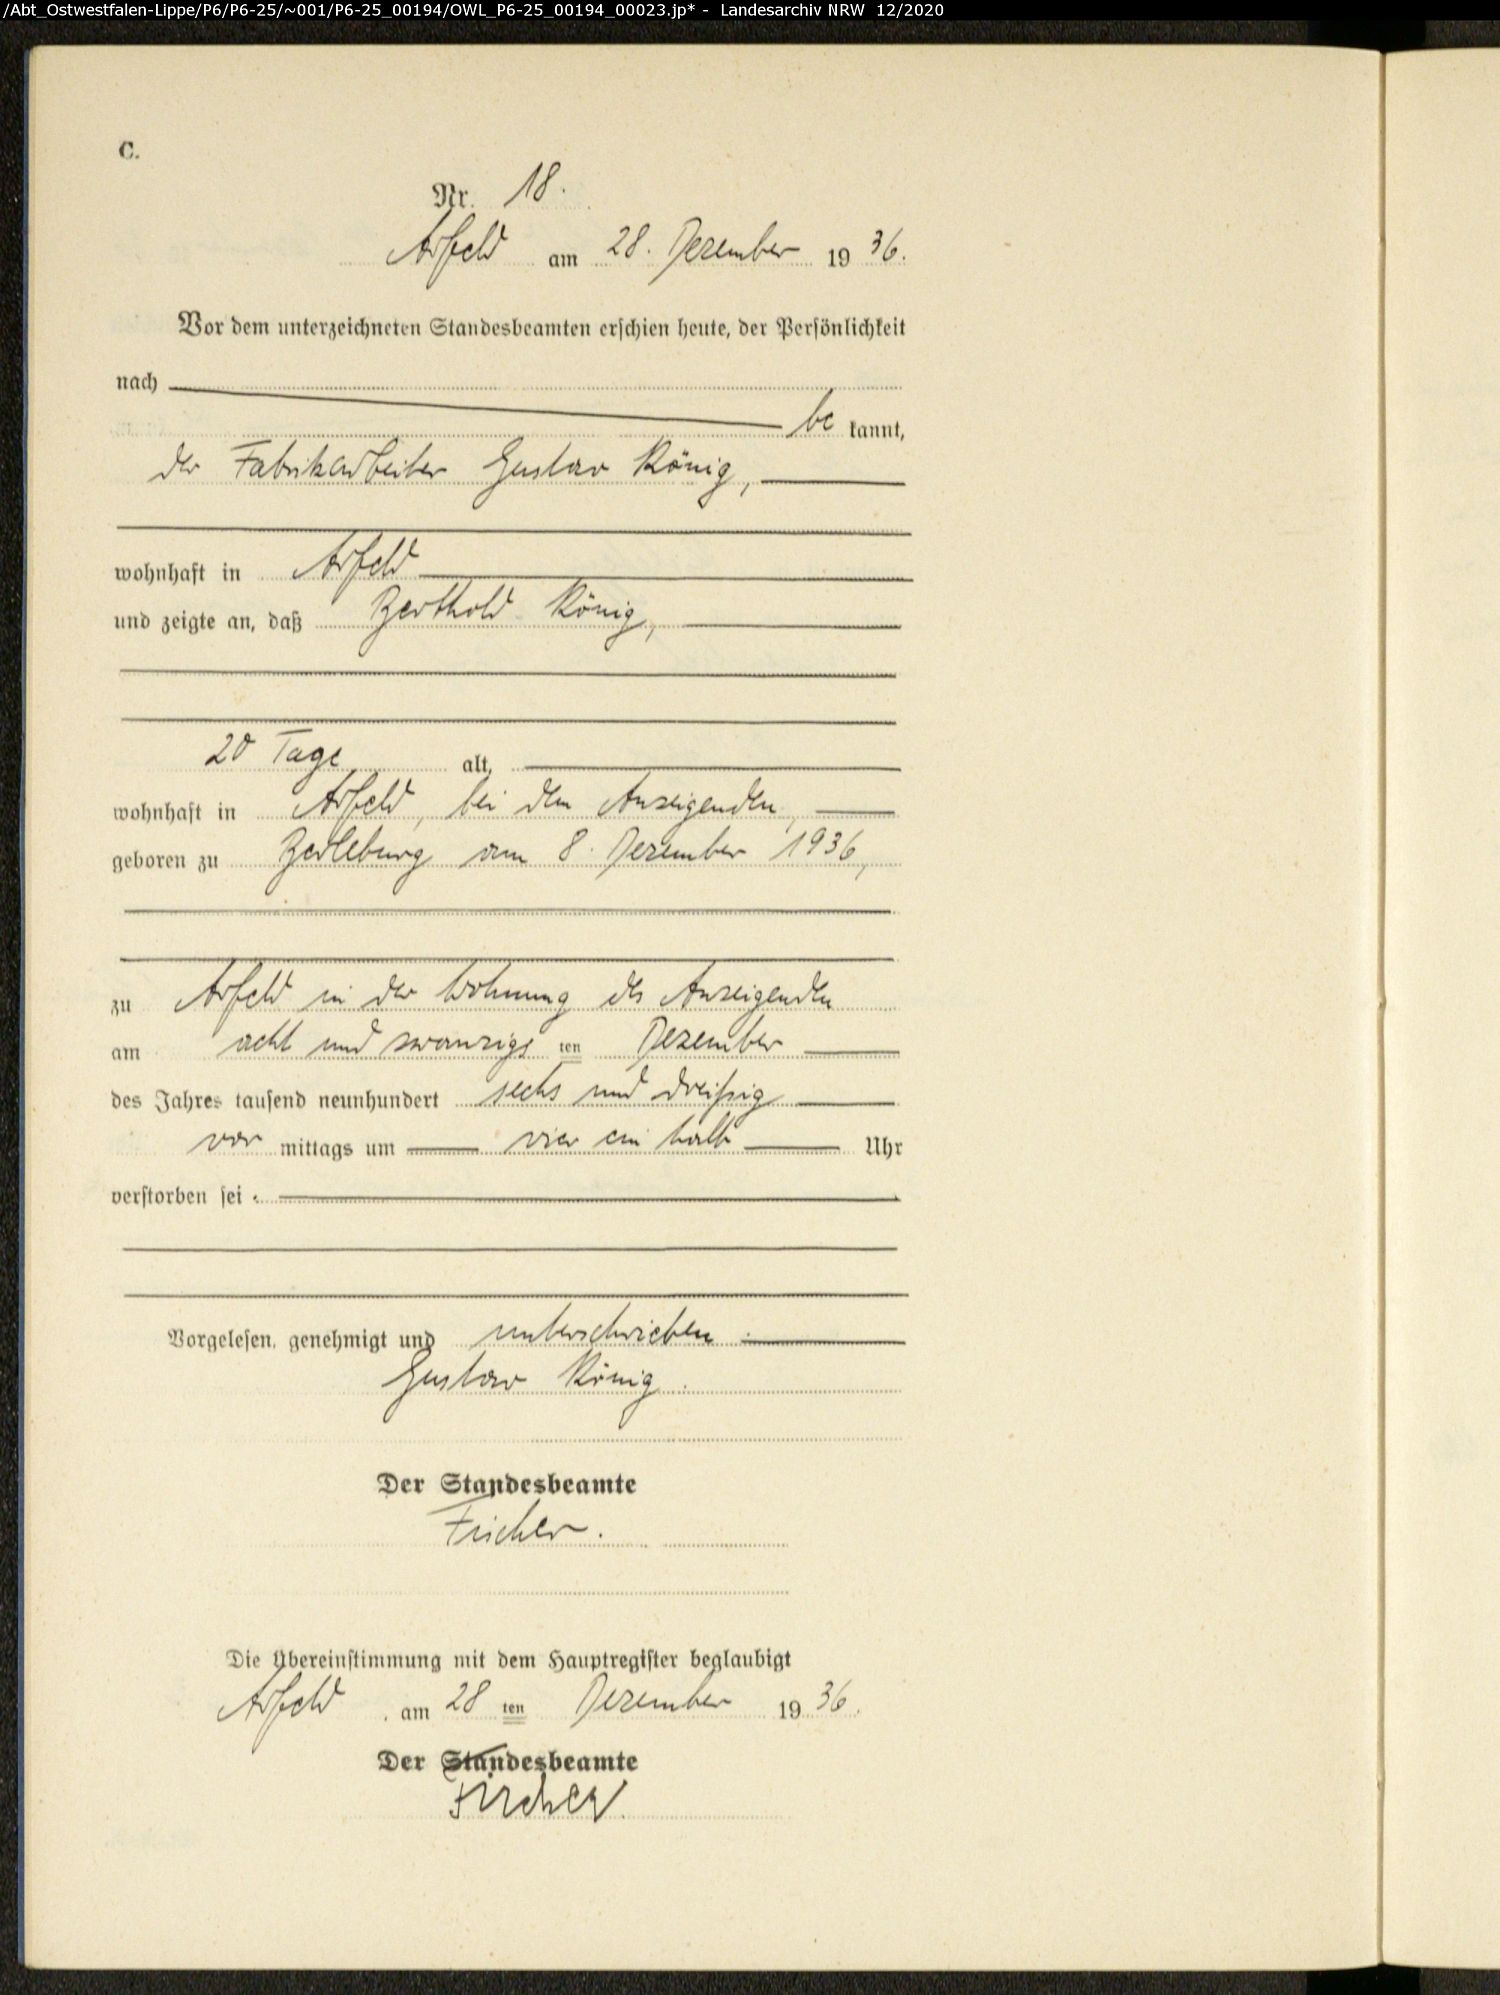 /Abt_Ostwestfalen-Lippe/P6/P6-25/~001/P6-25_00194/OWL_P6-25_00194_00023.jp* - Landesarchiv NRW 12/2020
C.
Nr. 18.
Arfeld am 28. Dezember 1936.
Vor dem unterzeichneten Standesbeamten erschien heute, der Persönlichkeit
nach
be kannt,
der Fabrikarbeiter Gustav König,
wohnhaft in Arfeld
und zeigte an, daß Berthold König,
20 Tage alt,
wohnhaft in Arfeld, bei dem Anzeigenden,
geboren zu Berleburg am 8. Dezember 1936,
zu Arfeld in der Wohnung des Anzeigenden
am acht und zwanzigs ten Dezember
des Jahres tausend neunhundert sechs und dreißig
vor mittags um vier ein halb Uhr
verstorben sei.
Vorgelesen, genehmigt und unterschrieben.
Gustav König.
Der Standesbeamte
Fischer.
Die Übereinstimmung mit dem Hauptregister beglaubigt
Arfeld, am 28 ten Dezember 1936.
Der Standesbeamte
Fischer